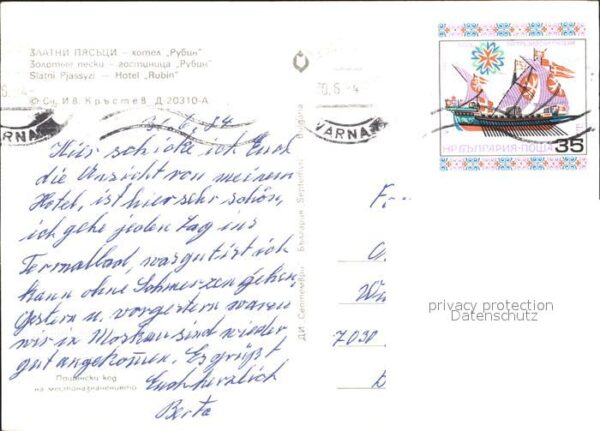 ЗЛАТНИ ПЯСЪЦИ – хотел „Рубин"
Золотые пески – гостиница „Рубин"
Slatni Pjassyzi – Hotel „Rubin"
© Сн. Ив. Кръстев Д-20310-А
VARNA
VARNA
НР БЪЛГАРИЯ·ПОЩА
35
ДИ „Септември" България Septemvri Bulgaria
Hier schicke ich Euch
die Ansicht von meinem
Hotel, ist hier sehr schön,
ich gehe jeden Tag ins
Termalbad, was gut ist ich
kann ohne Schmerzen gehen,
Gestern u. vorgestern waren
wir in Moskau sind wieder
gut angekomen. Es grüßt
Euch herzlich
Berta
Пощенски код
на местоназначението
7030
privacy protection
Datenschutz